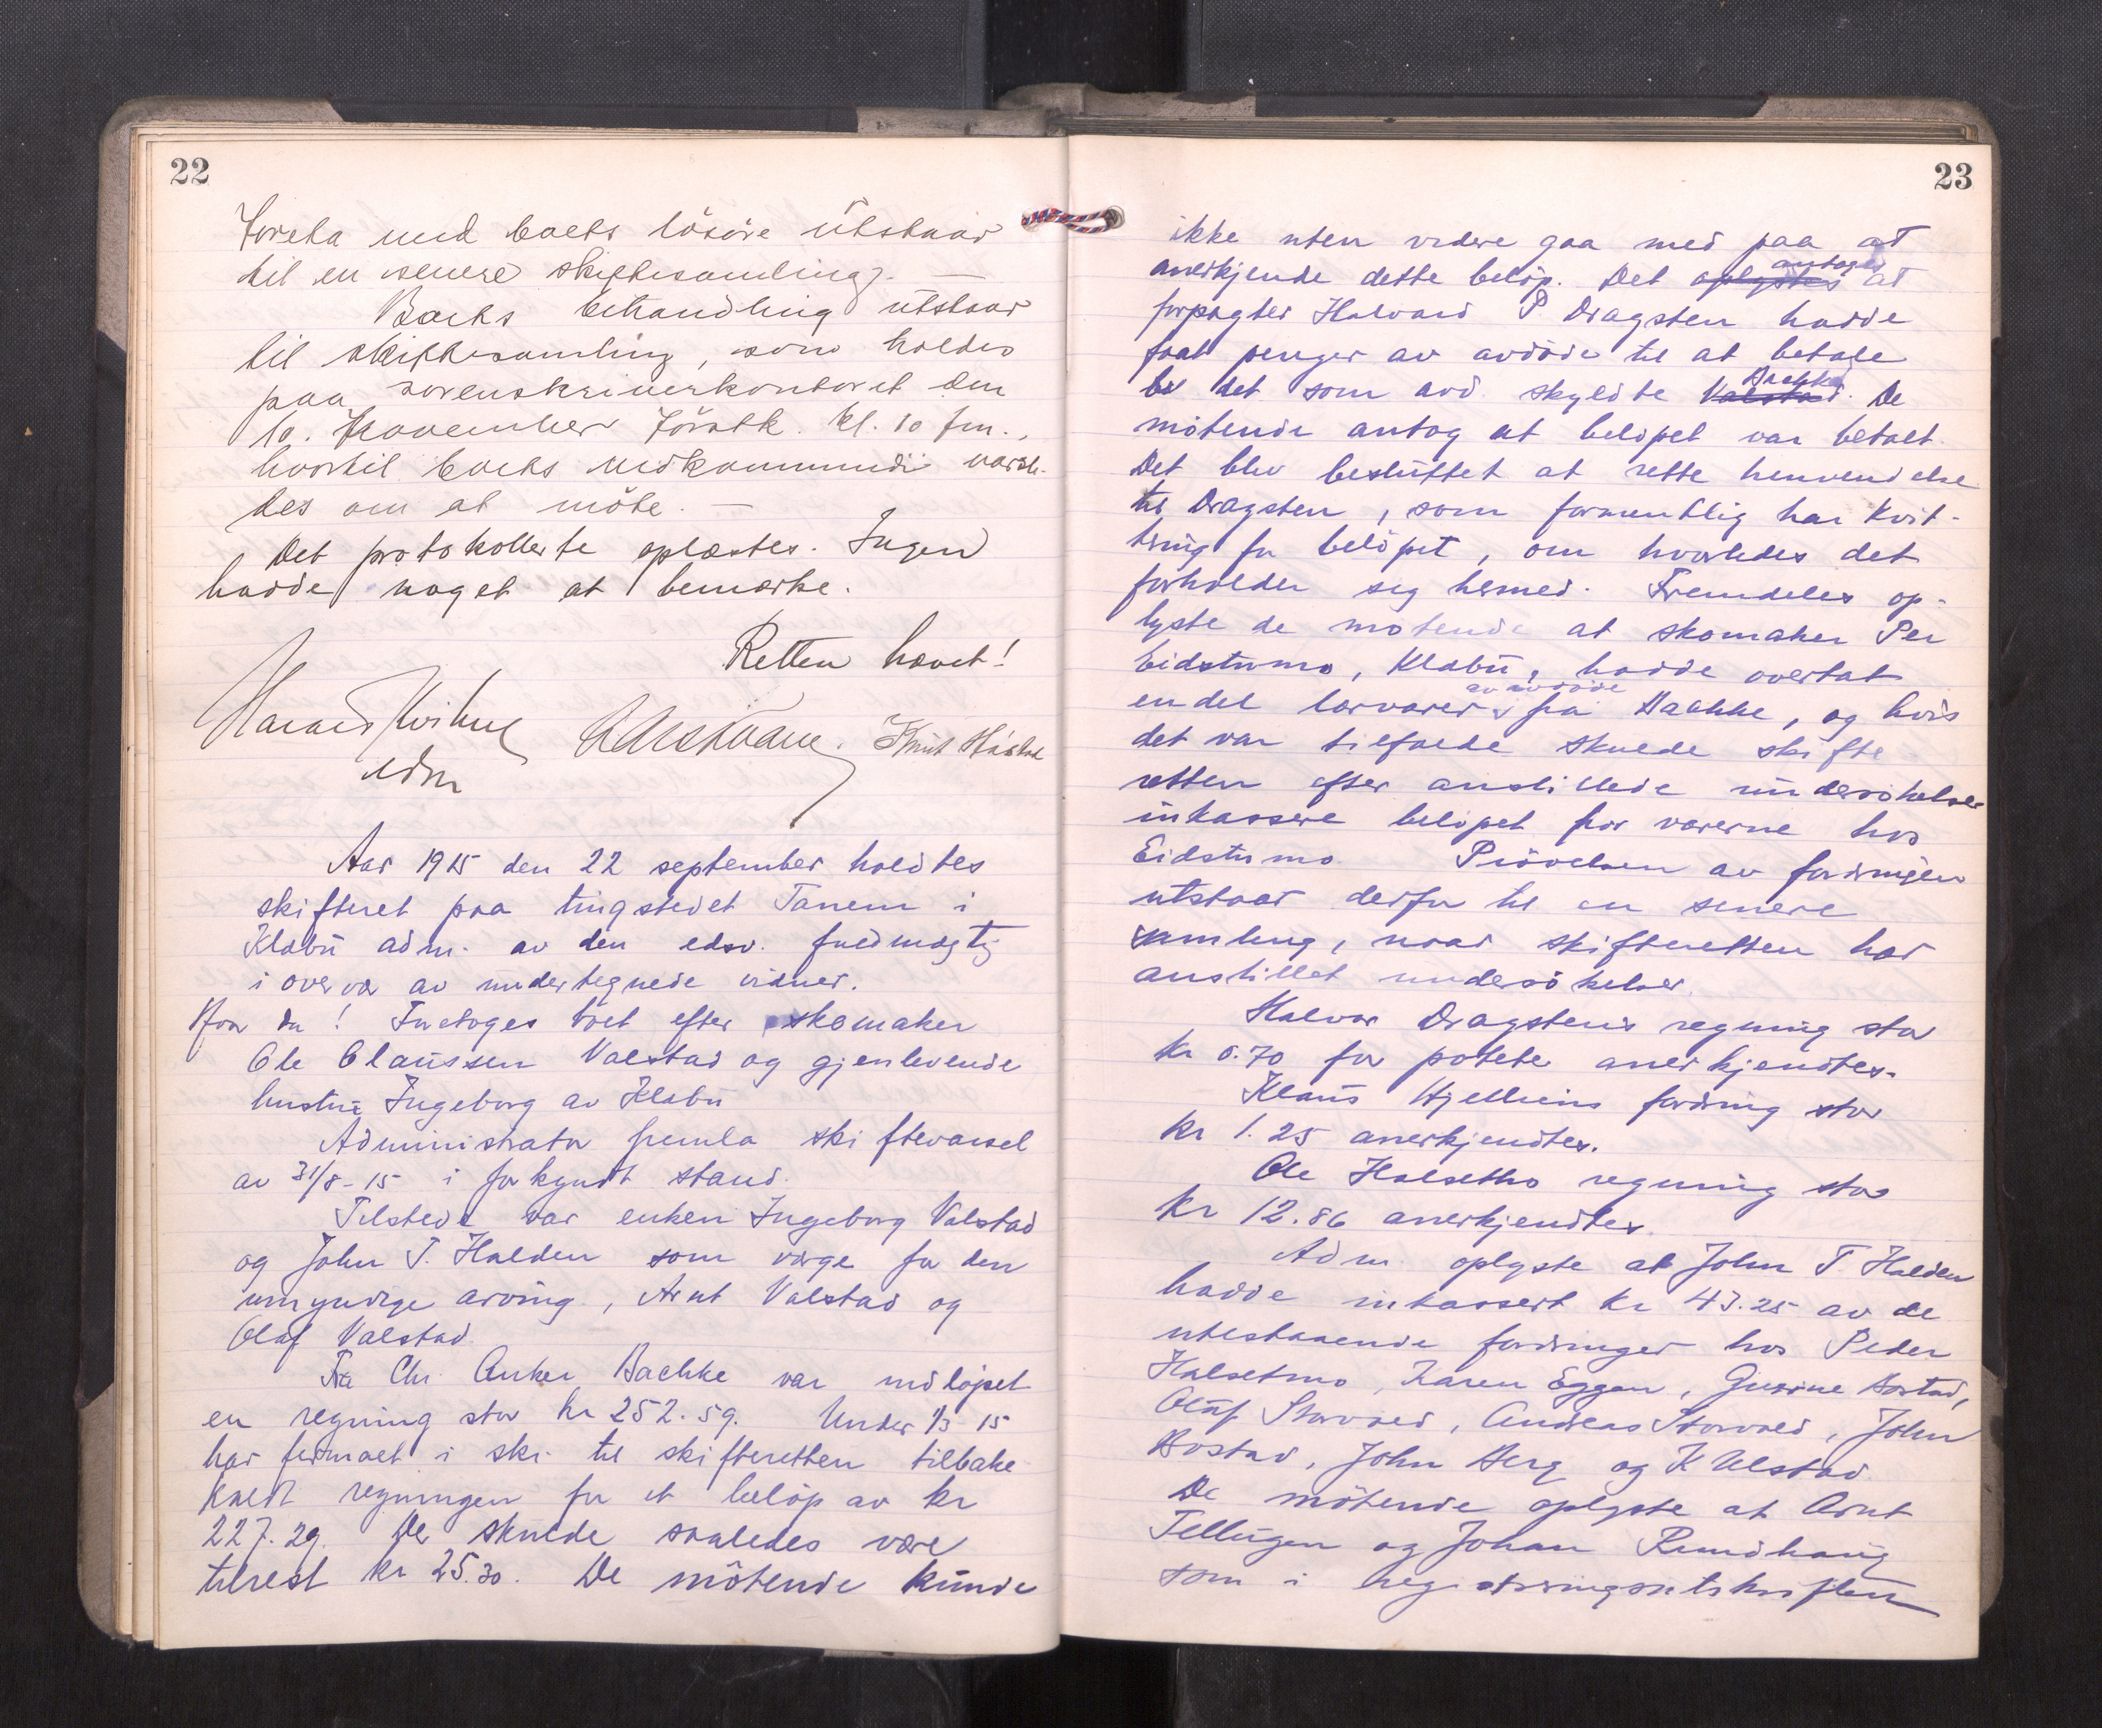 22
foreta med boets løsøre utstaar
til en senere skiftesamling. —
Boets behandling utstaar
til skiftesamling, som holdes
paa sorenskriverkontoret den
10. November førstk. kl. 10 fm.,
hvortil boets vedkommende varsle-
des om at møte. —
Det protokollerte oplæstes. Ingen
hadde noget at bemerke.
Retten hævet!
adm
Aar 1915 den 22 september holdtes
skifteret paa tingstedet Tanem i
Klæbu adm. av den edsv. fuldmægtig
i overvær av undertegnede vidner.
Hvor da! Foretoges boet efter skomaker
Ole Claussen Valstad og gjenlevende
hustru Ingeborg av Klæbu
Administrator fremla skiftevarsel
av 31/8-15 i forkyndt stand.
Tilstede var enken Ingeborg Valstad
og John T. Halden som værge for den
umyndige arving, Arnt Valstad og
Olaf Valstad.
Fra Chr. Anker Bachke var indløpet
en regning stor kr 252.59. Under 1/3 15
har firmaet i skr. til skifteretten tilbake
kaldt regningen for et beløp av kr
227.29. Der skulde saaledes være
tilrest kr 25.30. De møtende kunde
23
ikke uten videre gaa med paa at
anerkjende dette beløp. Det oplystes antoges at
forpagter Halvard P. Dragsten hadde
faat penger av avdøde til at betale
be det som avd. skyldte Valstad Bachke. De
møtende antog at beløpet var betalt.
Det blev besluttet at rette henvendelse
til Dragsten, som formentlig har kvit-
tering for beløpet, om hvorledes det
forholder seg hermed. Fremdeles op-
lyste de møtende at skomaker Per
Eidstumo, Klæbu, hadde overtat
endel lærvarer av avdøde fra Bachke, og hvis
det var tilfælde skulde skifte
retten efter anstillede undersøkelser
inkassere beløpet for varerne hos
Eidstumo Prøvelsen av fordringen
utstaar derfor til en senere
samling, naar skifteretten har
anstillet undersøkelser.
Halvor Dragstens regning stor
kr 0.70 for potete anerkjendtes.
Klaus Hjelliens fordring stor
kr 1.25 anerkjendtes.
Ole Halsetho regning stor
kr 12.86 anerkjendtes.
Adm. oplyste at John T Halden
hadde inkassert kr 43.25 av de
utestaaende fordringer hos Peder
Halsetmo, Karen Eggen, Gurine Bostad,
Oluf Storvold, Andreas Storvold, John
Bostad, John Berg og K Ulstad
De møtende oplyste at Arnt
Tellugen og Johan Rundhaug
som i registreringsutskriften